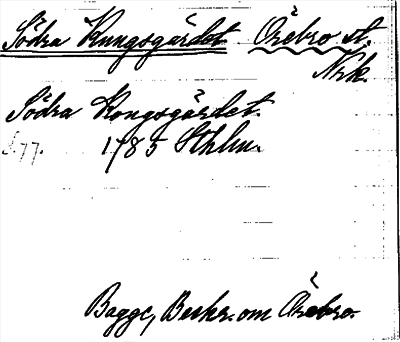 Södra Kungsgärdet. Örebro st.
Nrk.
Södra Kongsgärdet.
s. 77. 1785 Sthlm.
Bagge, Beskr. om Örebro.